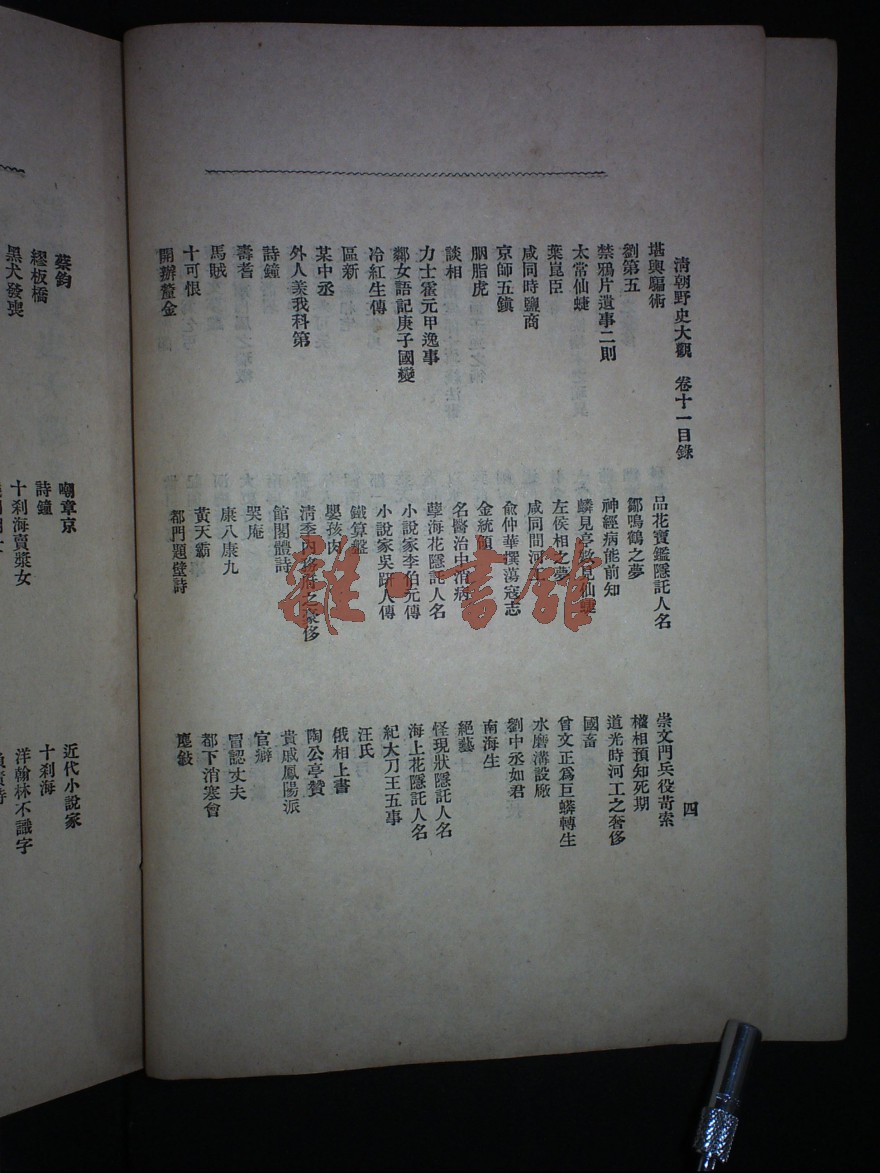 清朝野史大觀 卷十一目錄 四
堪輿騙術 品花寶鑑隱託人名 崇文門兵役苛索
劉第五 鄒鳴鶴之夢 權相預知死期
禁鴉片遺事二則 神經病能前知 道光時河工之奢侈
太常仙蝶 麟見亭數見仙蝶 國畜
葉崑臣 左侯相之夢 曾文正爲巨蟒轉生
咸同時鹽商 咸同間河工 水磨溝設廠
京師五鎮 俞仲華撰蕩寇志 劉中丞如君
胭脂虎 金統領 南海生
談相 名醫治中消病 絕藝
力士霍元甲逸事 孽海花隱託人名 怪現狀隱託人名
鄰女語記庚子國變 小說家李伯元傳 海上花隱託人名
冷紅生傳 小說家吳趼人傳 紀大刀王五事
區新 鐵算盤 汪氏
某中丞 嬰孩肉 俄相上書
外人羨我科第 清季內務府之豪侈 陶公亭贊
詩鐘 館閣體詩 貴戚鳳陽派
壽耇 哭庵 官癖
馬賊 康八康九 冒認丈夫
十可恨 黃天霸 都下消寒會
開辦釐金 都門題壁詩
蔡鈞 嘲章京 近代小說家
繆板橋 詩鐘 十剎海
黑犬發喪 十剎海賣漿女 洋翰林不識字
雜·書館